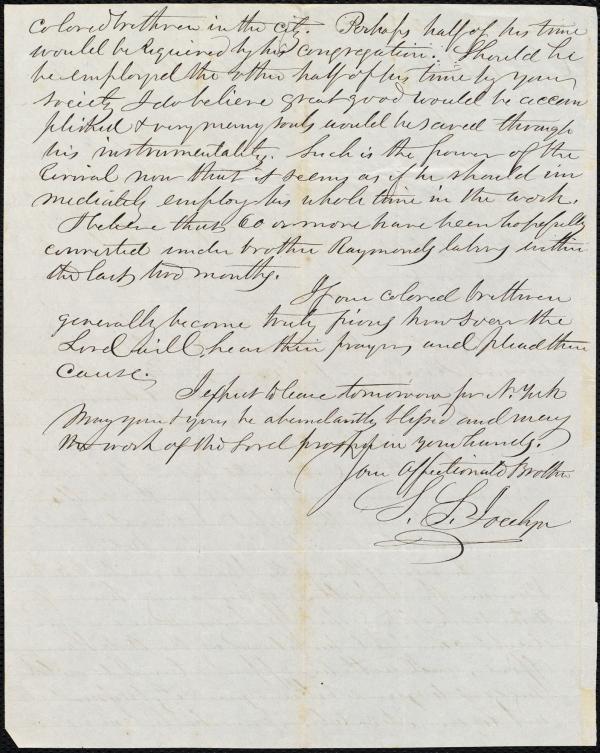 colored brethren in the city. Perhaps half of his time
would be required by his congregation. Should he
be employed the other half of his time by your
society I do believe great good would be accom
plished & very many souls would be saved through
his instrumentality. Such is the power of the
revival now that it seems as if he should im
mediately employ his whole time in the work.
I believe that 60 or more have been hopefully
converted under brother Raymonds labors within
the last two months.
If our colored brethren
generally become truly pious how soon the
Lord will hear their prayers and plead their
cause.
I expect to leave tomorrow for N. York
May you & yours be abundantly blessed and may
the work of the Lord prosper in your hands.
Your Affectionate Brother
S. S. Jocelyn